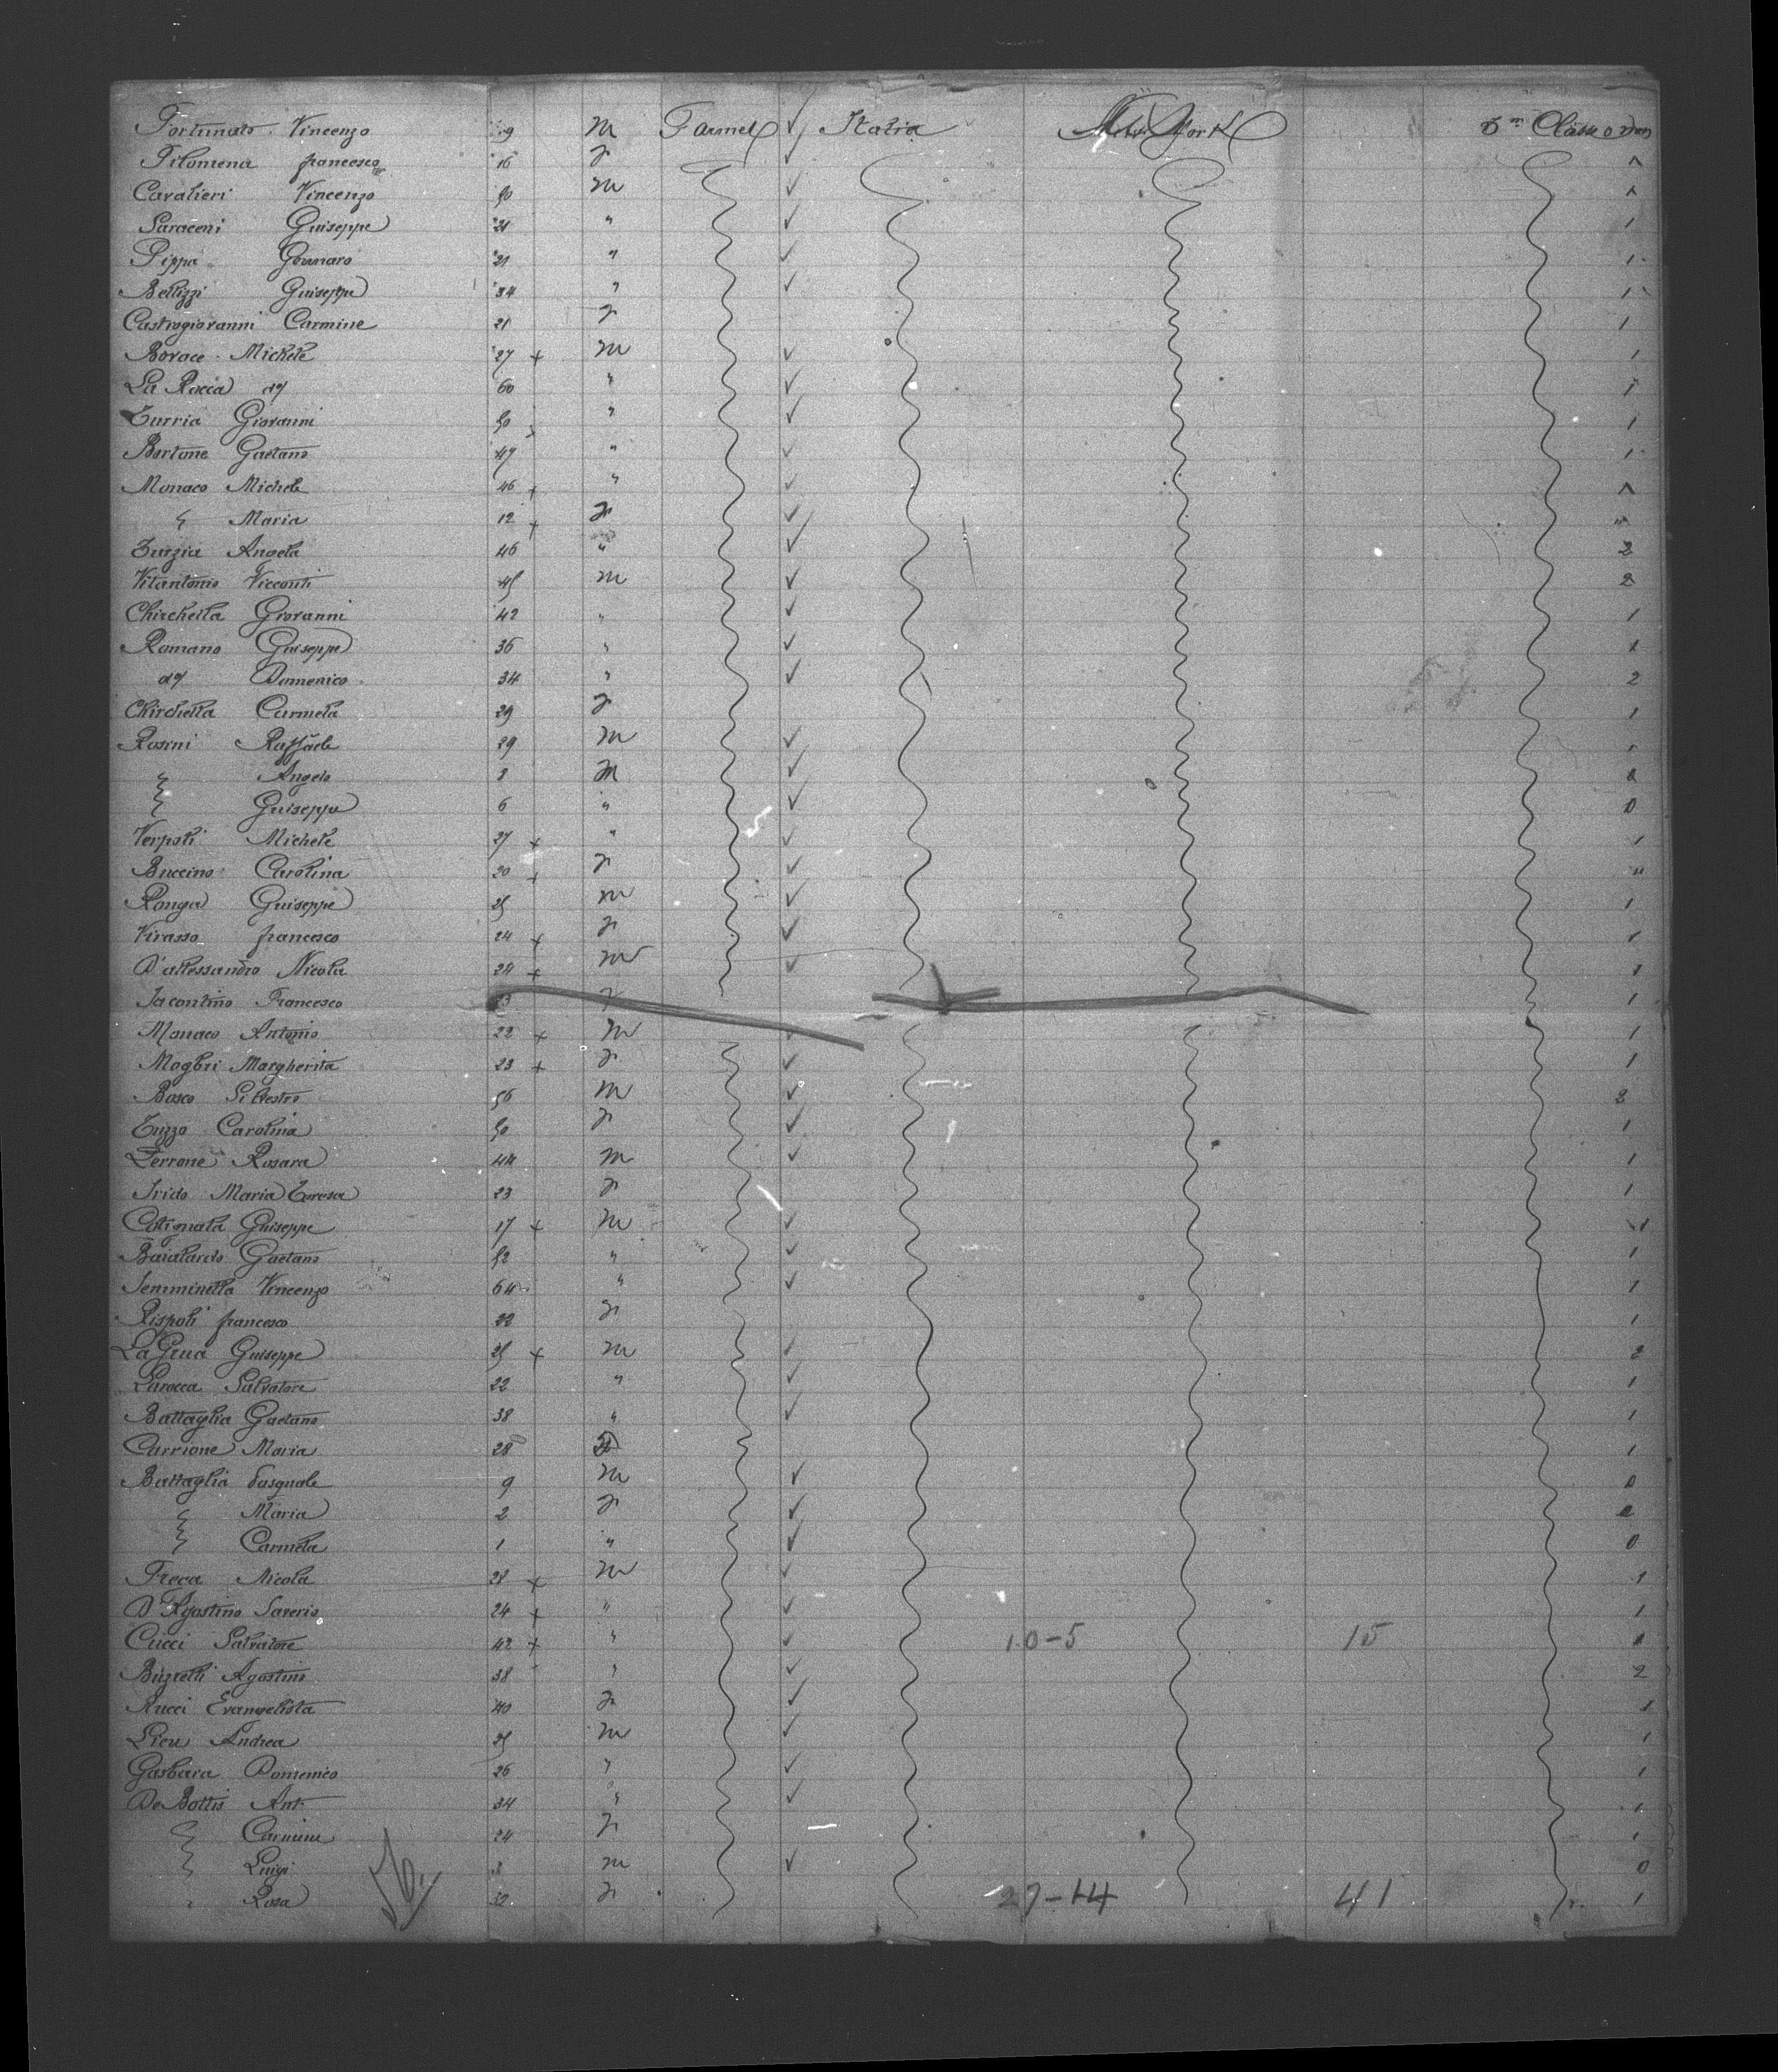 Fortunato Vincenzo 19 m Farmer ✓ Italia New York Class
Filomena francesco 16 f ✓ 1
Cavalieri Vincenzo 50 m ✓ 1
Saraceni Guiseppe 21 " ✓ 1
Pippa Gennaro 21 " ✓ 1
Bellizzi Guiseppe 34 " ✓ 1
Castrogiovanni Carmine 21 f 1
Borace Michele 27 + m ✓ 1
La Rocca 60 " ✓ 1
Turria Giovanni 50 " ✓ 1
Bortone Gaetano 47 " ✓ 1
Monaco Michele 46 + " ✓ 1
" Maria 12 + f ✓ "
Turzia Angela 46 " ✓ 2
Vitantonio Vicconti 45 m ✓ 2
Chirchella Giovanni 42 " ✓ 1
Romano Guiseppe 36 " ✓ 1
Domenico 34 " ✓ 2
Chirchella Carmela 29 f 1
Rosini Raffaele 29 m ✓ 1
" Angelo 8 m ✓ 0
" Guiseppe 6 " ✓ 0
Verpoli Michele 27 + " ✓ 1
Buccino Carolina 20 + f ✓ "
Ronga Guiseppe 25 m ✓ 1
Virasso francesco 24 + f ✓ 1
D'allessandro Nicola 24 + m ✓ 1
Jacontino Francesco 23 1
Monaco Antonio 22 + m ✓ 1
Mogbri Margherita 23 + f ✓ 1
Bosco Silvestro 56 m ✓ 3
Tuzzo Carolina 50 f ✓ 1
Ferrone Rosara 44 m ✓ 1
Irido Maria Teresa 23 f 1
Cotignala Guiseppe 17 + m ✓ 1
Baialardo Gaetano 52 " ✓ 1
Jemminella Vincenzo 64 " ✓ 1
Rispoli francesco 22 f 1
La Grua Guiseppe 25 + m ✓ 2
Larocca Salvatore 22 " ✓ 1
Battaglia Gaetano 38 " ✓ 1
Carrione Maria 28 1
Battaglia Pasquale 9 m ✓ 0
" Maria 2 f ✓ 0
" Carmela 1 " ✓ 0
Freca Nicola 28 + m ✓ 1
D'Agostino Saverio 24 + " ✓ 1
Cucci Salvatore 42 + " ✓ 10-5 15
Buzzelli Agostino 38 " ✓ 2
Rucci Evangelista 40 f ✓ 1
Lieu Andrea 25 m ✓ 1
Gasbara Domenico 26 " ✓ 1
De Bottis Ant. 34 " ✓ 1
" Carmine 24 f 1
" Luigi 3 m ✓ 0
" Rosa 32 f 27-14 41 1